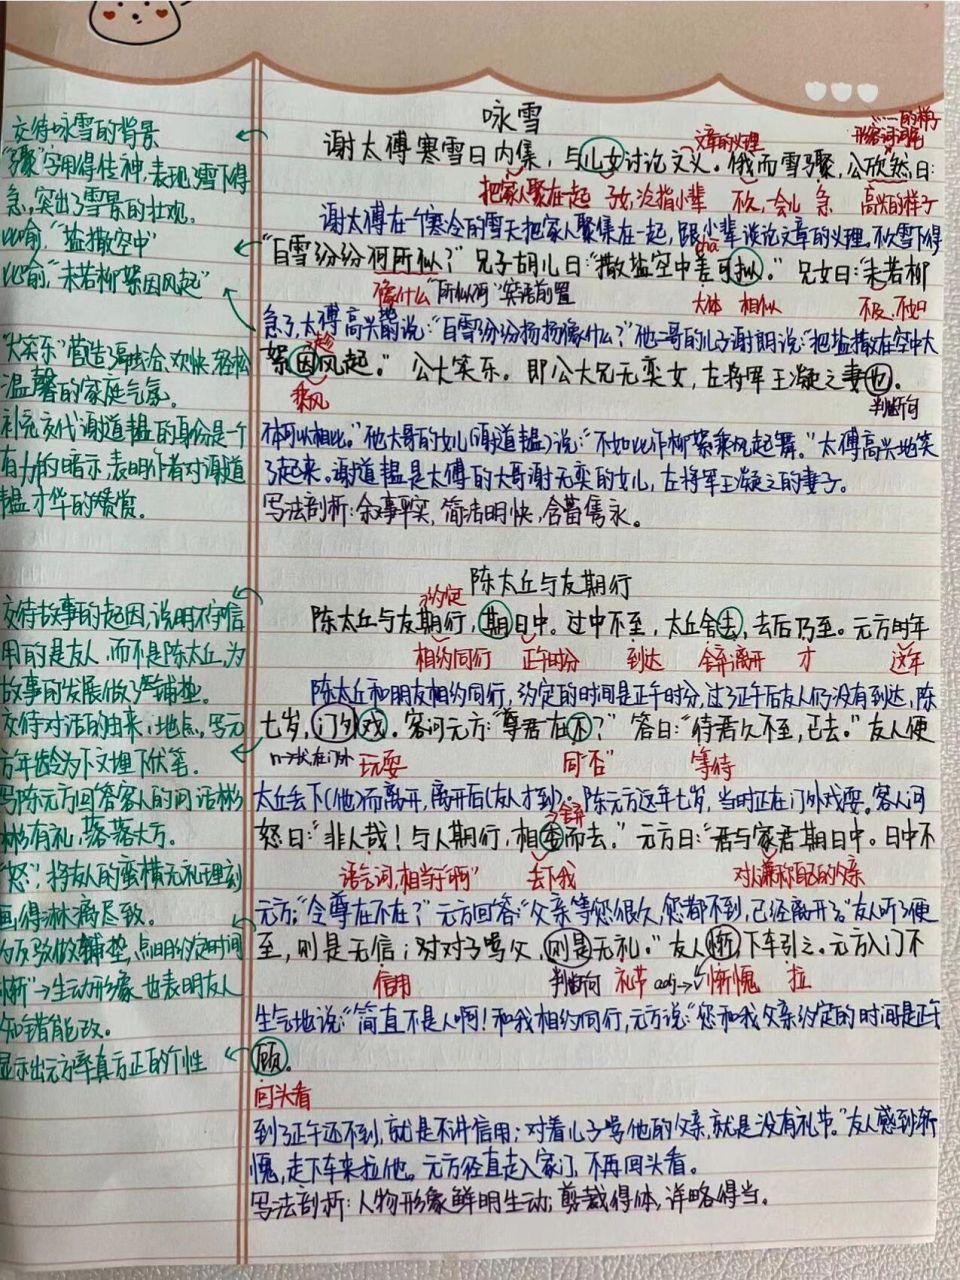 咏雪
谢太傅寒雪日内集，与儿女讨论文义。俄而雪骤，公欣然曰：
文章的义理
形容词词尾
……的样子
把家人聚在一起 子女，泛指小辈 不久，一会儿 急 高兴的样子
谢太傅在一个寒冷的雪天把家人聚集在一起，跟小辈谈论文章的义理。不久雪下得
"白雪纷纷何所似？"兄子胡儿曰："撒盐空中差可拟。"兄女曰："未若柳
chā
像什么 "所似何"宾语前置 大体 相似 不及、不如
急了，太傅高兴地说："白雪纷纷扬扬像什么？"他大哥的儿子谢朗说："把盐撒在空中大
絮因风起。"公大笑乐。即公大兄无奕女，左将军王凝之妻也。
乘风
判断句
体可以相比。"他大哥的女儿（谢道韫）说："不如比作柳絮乘风起舞。"太傅高兴地笑
了起来。谢道韫是太傅的大哥谢无奕的女儿，左将军王凝之的妻子。
写法剖析：余事平实，简洁明快，含蓄隽永。
陈太丘与友期行
约定
陈太丘与友期行，期日中。过中不至，太丘舍去，去后乃至。元方时年
相约同行 正午时分 到达 舍弃离开 才 这年
陈太丘和朋友相约同行，约定的时间是正午时分，过了正午后友人仍没有到达，陈
七岁，门外戏。客问元方："尊君在不？"答曰："待君久不至，已去。"友人便
n→状在门外 玩耍 同"否" 等待
太丘丢下（他）而离开，离开后（友人才到）。陈元方这年七岁，当时正在门外戏耍。客人问
怒曰："非人哉！与人期行，相委而去。"元方曰："君与家君期日中。日中不
舍弃
语气词，相当于"啊" 丢下我 对人谦称自己的父亲
元方："令尊在不在？"元方回答："父亲等您很久，您都不到，已经离开了。"友人听了便
至，则是无信；对子骂父，则是无礼。"友人惭，下车引之。元方入门不
信用 判断句 礼节 adj→v惭愧 拉
生气地说："简直不是人啊！和我相约同行，元方说："您和我父亲约定的时间是正午
顾。
回头看
到了正午还不到，就是不讲信用；对着儿子骂他的父亲，就是没有礼节。"友人感到惭
愧，走下车来拉他。元方径直走入家门，不再回头看。
写法剖析：人物形象鲜明生动，剪裁得体，详略得当。
交待咏雪的背景
"骤"字用得传神，表现了雪下得
急，突出了雪景的壮观。
比喻，"盐撒空中"
比喻，"未若柳絮因风起"
"大笑乐"营造了融洽、欢快、轻松
温馨的家庭气氛。
补充交代谢道韫的身份是个
有力的暗示，表明作者对谢道
韫才华的赞赏。
交待故事的起因，说明不守信
用的是友人，而不是陈太丘，为
故事的发展做了铺垫。
交待对话的由来，地点，写元
方年龄为下文埋下伏笔。
写陈元方回答客人的问话彬
彬有礼，落落大方。
"怒"，将友人的蛮横无礼理刻
画得淋漓尽致。
为反驳做铺垫，点明约定时间
"惭"→生动形象 也表明友人
知错能改。
显示出元方率真方正的个性